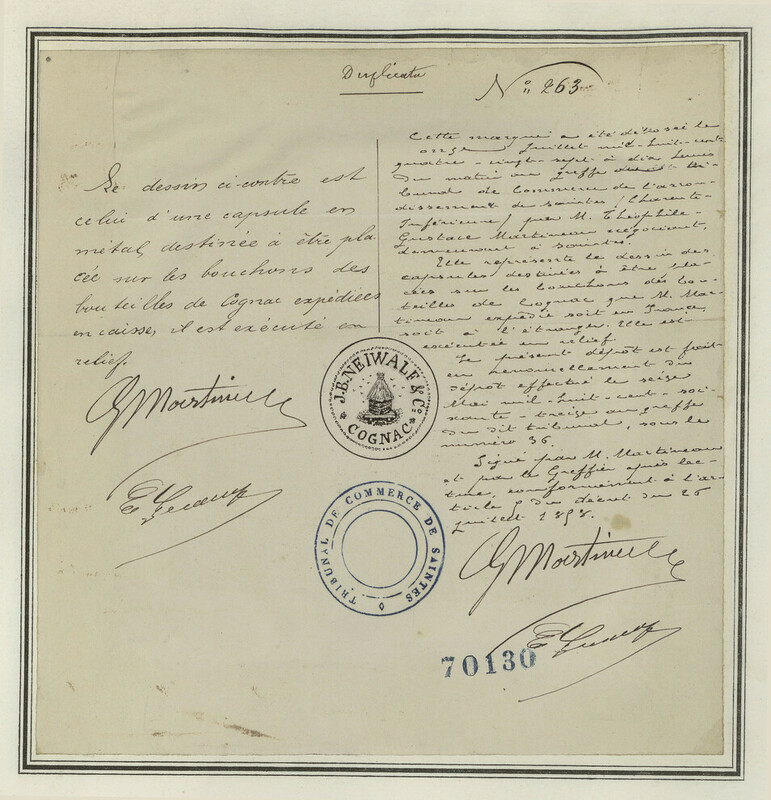 Duplicata
N° 263
Le dessin ci-contre est
celui d'une capsule en
métal, destinée à être pla
cée sur les bouchons des
bouteilles de Cognac expédiées
en caisse, il est exécuté en
relief.
G Martineau
Cette marque a été déposée le
onze Juillet mil-huit-cent
quatre-vingt-sept à dix heures
du matin au greffe du tri-
bunal de Commerce de l'arron-
dissement de Saintes (Charente-
Inférieure) par M. Théophile-
Gustave Martineau négociant,
demeurant à Saintes.
Elle représente le dessin des
capsules destinées à être pla-
cées sur les bouchons des bou-
teilles de Cognac que M. Mar-
tineau expédie soit en France,
soit à l'étranger. Elle est
exécutée en relief.
Le présent dépôt est fait
en renouvellement du
dépôt effectué le seize
Mai mil-huit-cent-soi-
xante-treize au greffe
du dit tribunal, sous le
numéro 36.
Signé par M. Martineau
et par le Greffier après lec-
ture, conformément à l'ar-
ticle 5 du décret du 26
juillet 1858.
G Martineau
J.B. NEIWALF & Co
COGNAC
TRIBUNAL DE COMMERCE DE SAINTES
70130